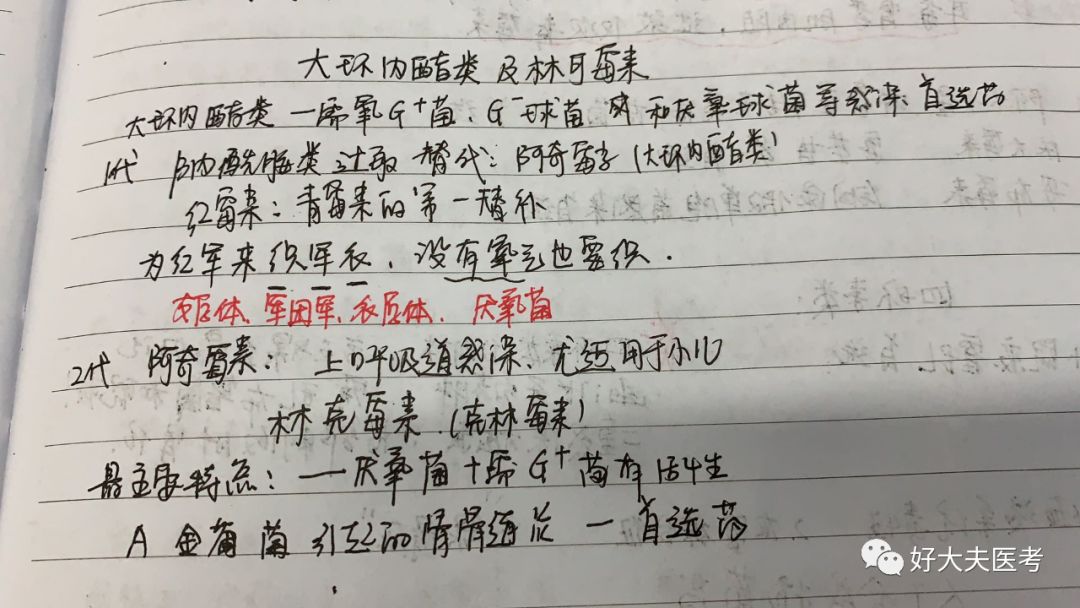 大环内酯类及林可霉素
大环内酯类 — 需氧G⁺菌、G⁻球菌 和厌氧球菌等感染 首选药
1代 β内酰胺类过敏 替代：阿奇霉素（大环内酯类）
红霉素：青霉素的第一替补
为红军来织军衣，没有氧气也要织．
支原体、军团军、衣原体、厌氧菌
2代 阿奇霉素：上呼吸道感染、尤适用于小儿
林克霉素．（克林霉素）
最主要特点：— 厌氧菌＋需G⁺菌有活性
A 金葡菌引起的骨髓炎 — 首选药
好大夫医考